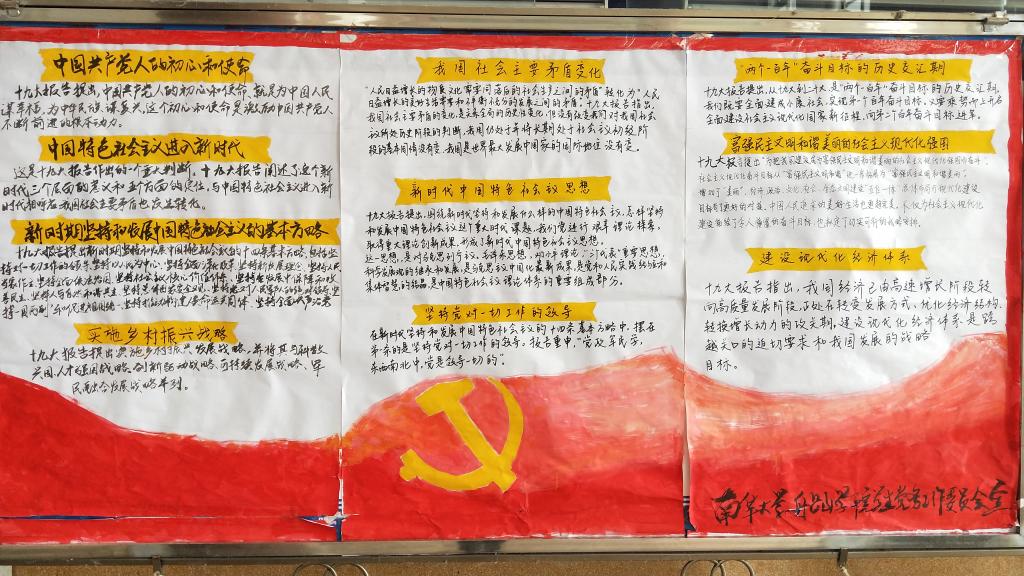 中国共产党人的初心和使命
十九大报告提出,中国共产党人的初心和使命,就是为中国人民
谋幸福,为中华民族谋复兴,这个初心和使命是激励中国共产党人
不断前进的根本动力。
中国特色社会主义进入新时代
这是十九大报告作出的一个重大判断。十九大报告阐述了这个新
时代三个层面的意义和五个方面的定位,与中国特色社会主义进入新
时代相呼应我国社会主要矛盾也发生转化。
新时期坚持和发展中国特色社会主义的基本方略
十九大报告提出新时期坚持和发展中国特色社会主义的十四条基本方略,包括坚
实施乡村振兴战略
十九大报告提出实施乡村振兴发展战略,并将其与科教
兴国、人才强国战略、创新驱动战略、可持续发展战略、军
民融合发展战略并列。
我国社会主要矛盾变化
"人民日益增长的物质文化需要同落后的社会生产之间的矛盾"转化为"人民
日益增长的美好生活需要和不平衡不充分的发展之间的矛盾"。十九大报告指出,
我国社会主要矛盾的变化是关系全局的历史性变化,但没有改变我们对我国社会
义所处历史阶段的判断,我国仍处于并将长期处于社会主义初级阶
段的基本国情没有变,我国是世界最大发展中国家的国际地位没有变。
新时代中国特色社会主义思想
十九大报告提出,围绕新时代坚持和发展什么样的中国特色社会主义,怎样坚持
和发展中国特色社会主义这个重大时代课题,我们党进行艰辛理论探索,
取得重大理论创新成果,形成了新时代中国特色社会主义思想。
这一思想,是对马克思列宁主义、毛泽东思想、邓小平理论、"三个代表"重要思想、
科学发展观的继承和发展,是马克思主义中国化最新成果,是党和人民实践经验和
集体智慧的结晶,是中国特色社会主义理论体系的重要组成部分。
坚持党对一切工作的领导
在新时代坚持和发展中国特色社会主义的十四条基本方略中,摆在
第一条的是坚持党对一切工作的领导。报告重申,"党政军民学,
东西南北中,党是领导一切的"。
"两个一百年"奋斗目标的历史交汇期
十九大报告提出,从十九大到二十大,是"两个一百年"奋斗目标的历史交汇期,
我们既要全面建成小康社会、实现第一个百年奋斗目标,又要乘势而上开启
全面建设社会主义现代化国家新征程,向第二个百年奋斗目标进军。
富强民主文明和谐美丽的社会主义现代化强国
十九大报告提出"为把我国建设成为富强民主文明和谐美丽的社会主义现代化强国而奋斗"。
建设现代化经济体系
十九大报告指出,我国经济已由高速增长阶段转
向高质量发展阶段,正处在转变发展方式、优化经济结构、
转换增长动力的攻关期,建设现代化经济体系是跨
越关口的迫切要求和我国发展的战略
目标。
南华大学船山学院学生党务工作委员会宣